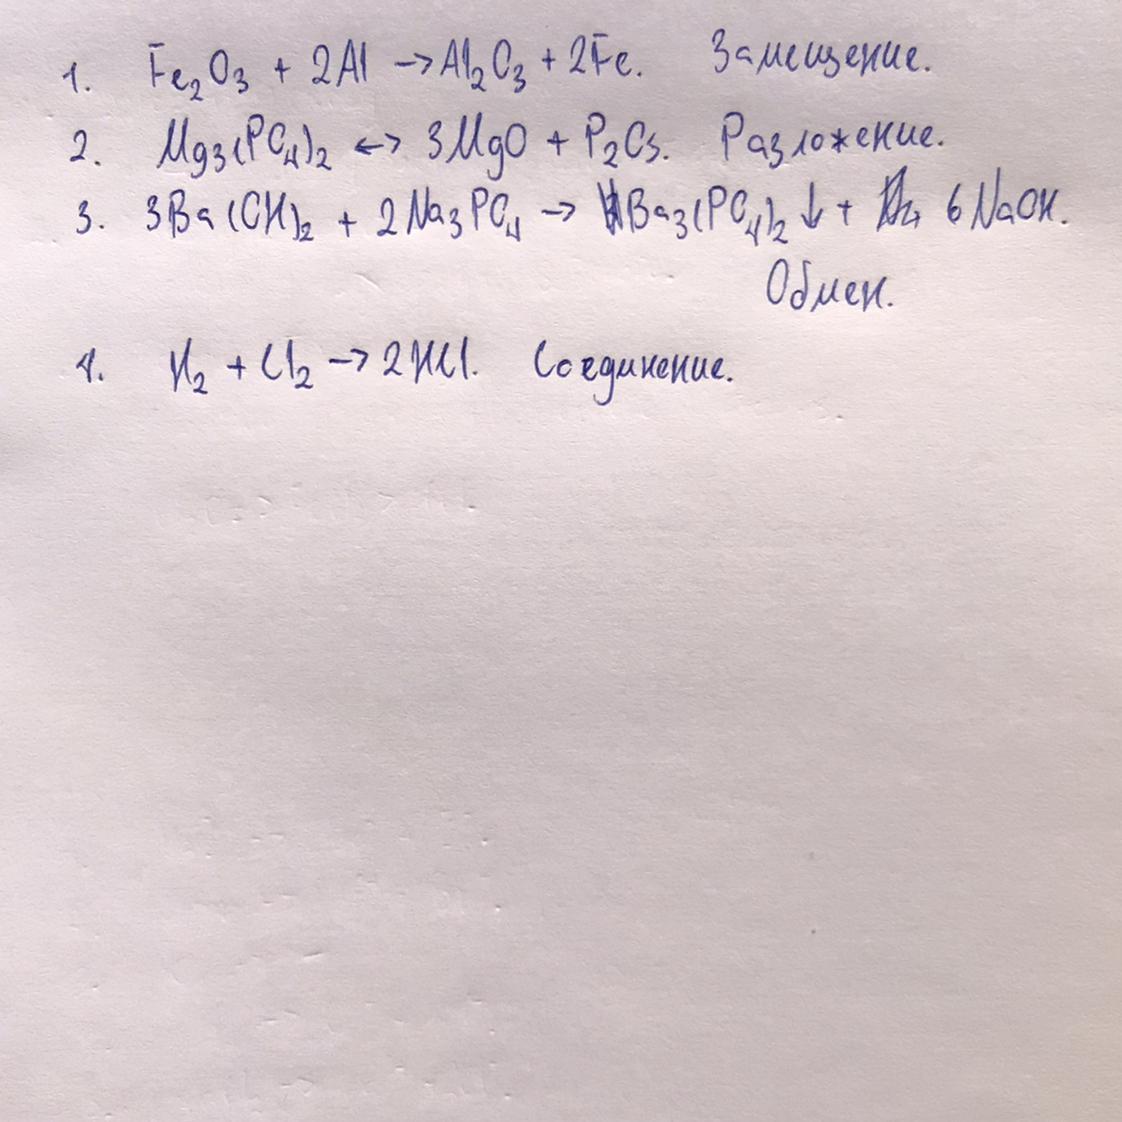 1. Fe₂O₃ + 2Al → Al₂O₃ + 2Fe. Замещение.
2. Mg₃(PO₄)₂ ↔ 3MgO + P₂O₅. Разложение.
3. 3Ba(OH)₂ + 2Na₃PO₄ → Ba₃(PO₄)₂ ↓ + 6NaOH.
Обмен.
4. H₂ + Cl₂ → 2HCl. Соединение.